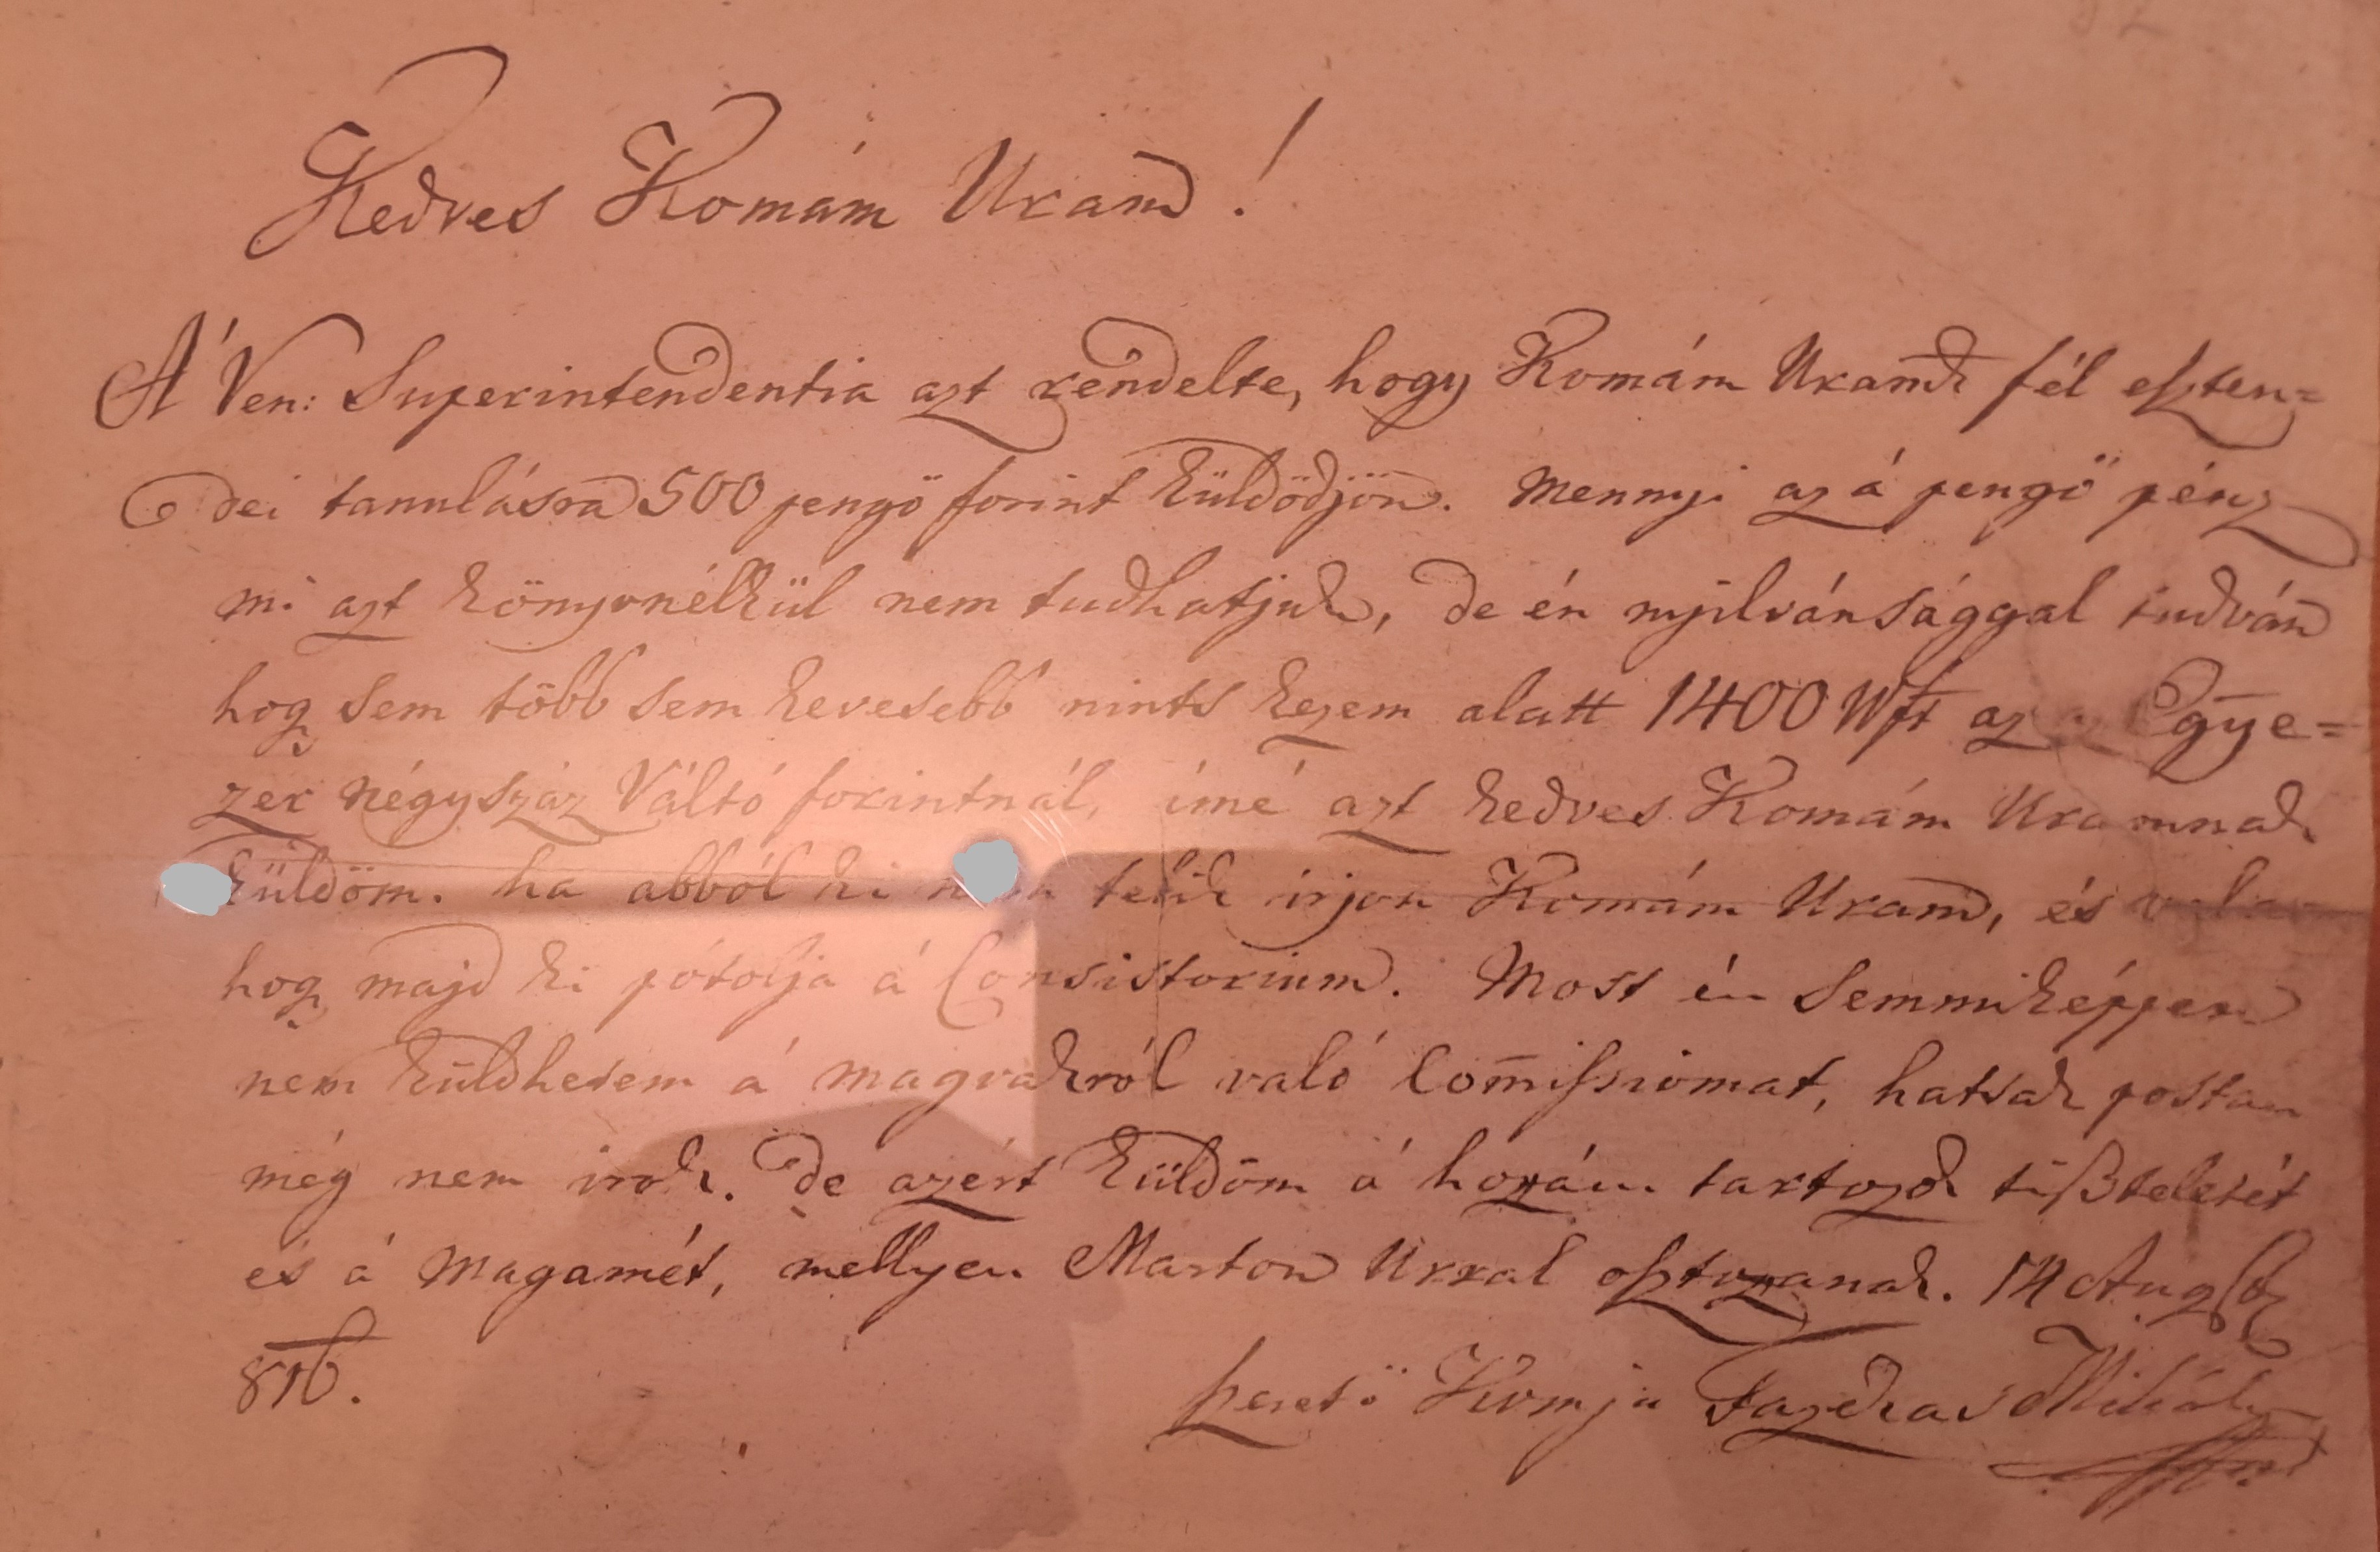 Kedves Komám Uram!
Á Ven: Superintendentia azt rendelte, hogy Komám Uramk fél eszten=
dei tanulásra 500 pengö forint küldödjön. Mennyi az á pengö pénz
mi azt könyvnélkül nem tudhatjuk, de én nyilvánsággal tudván
hogy sem több sem kevesebb nints kezem alatt 1400 Wft az Egye=
zer négyszáz Váltó forintnál, ímé azt kedves Komám Uramnak
küldöm. ha abból ki telik irjon Komám Uram, és
hogy majd ki pótolja á Consistorium. Most én semmiképpen
nem küldhetem á magvakról való Comissiomat, hatsak postan
még nem irok. De azért küldöm á hozám tartozok tiszteletét
és á magamét, mellyen Marton Urral osztozanak. 14 Aug
816.
szerető Komja Fazekas Mihály